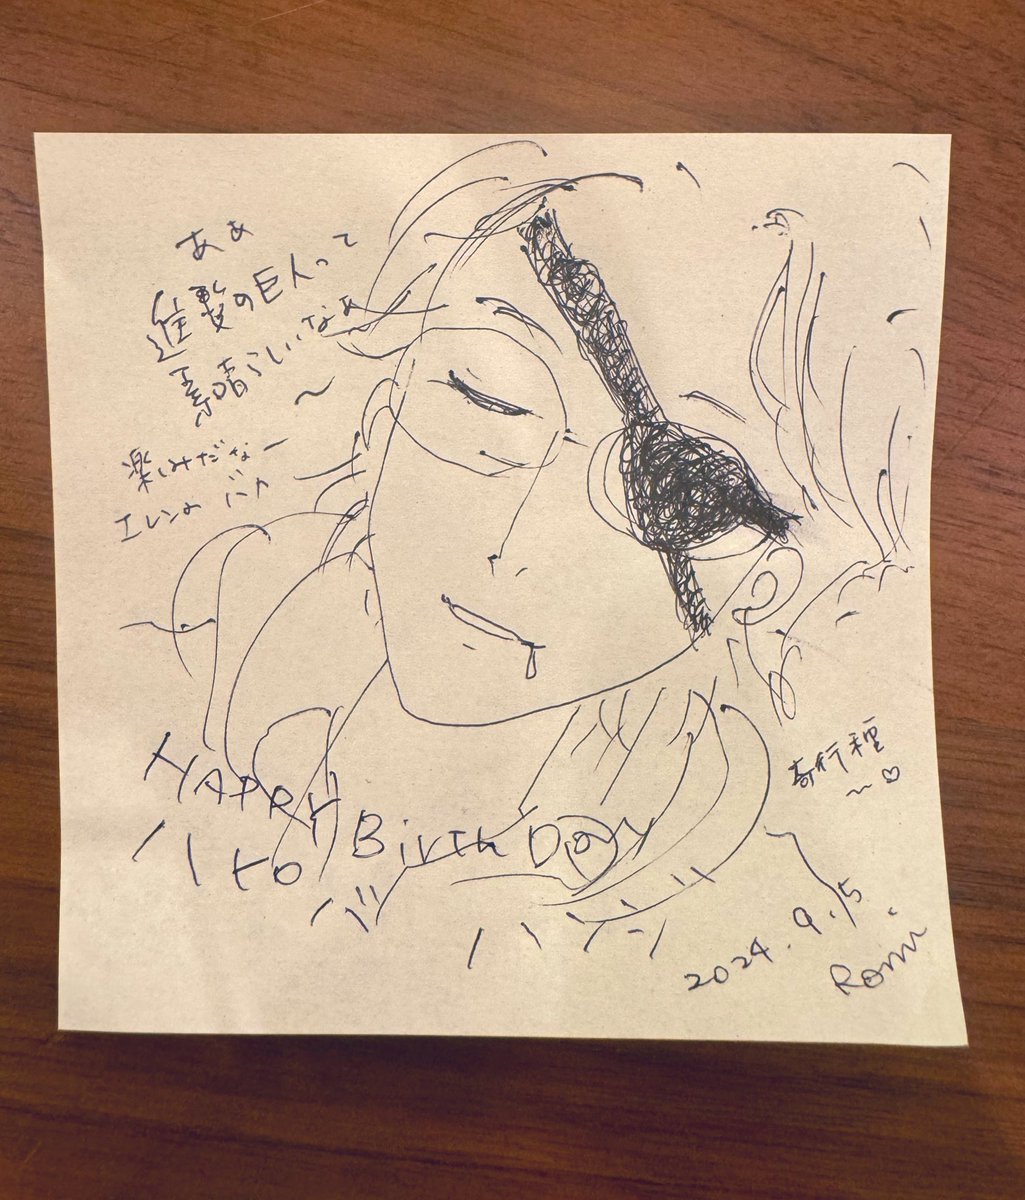 あぁ
進撃の巨人って
素晴らしいなぁ
〜
楽しみだなー
エレンのバカ
奇行種
〜♡
HAPPY Birth Day
to
2024.9.5
Romi